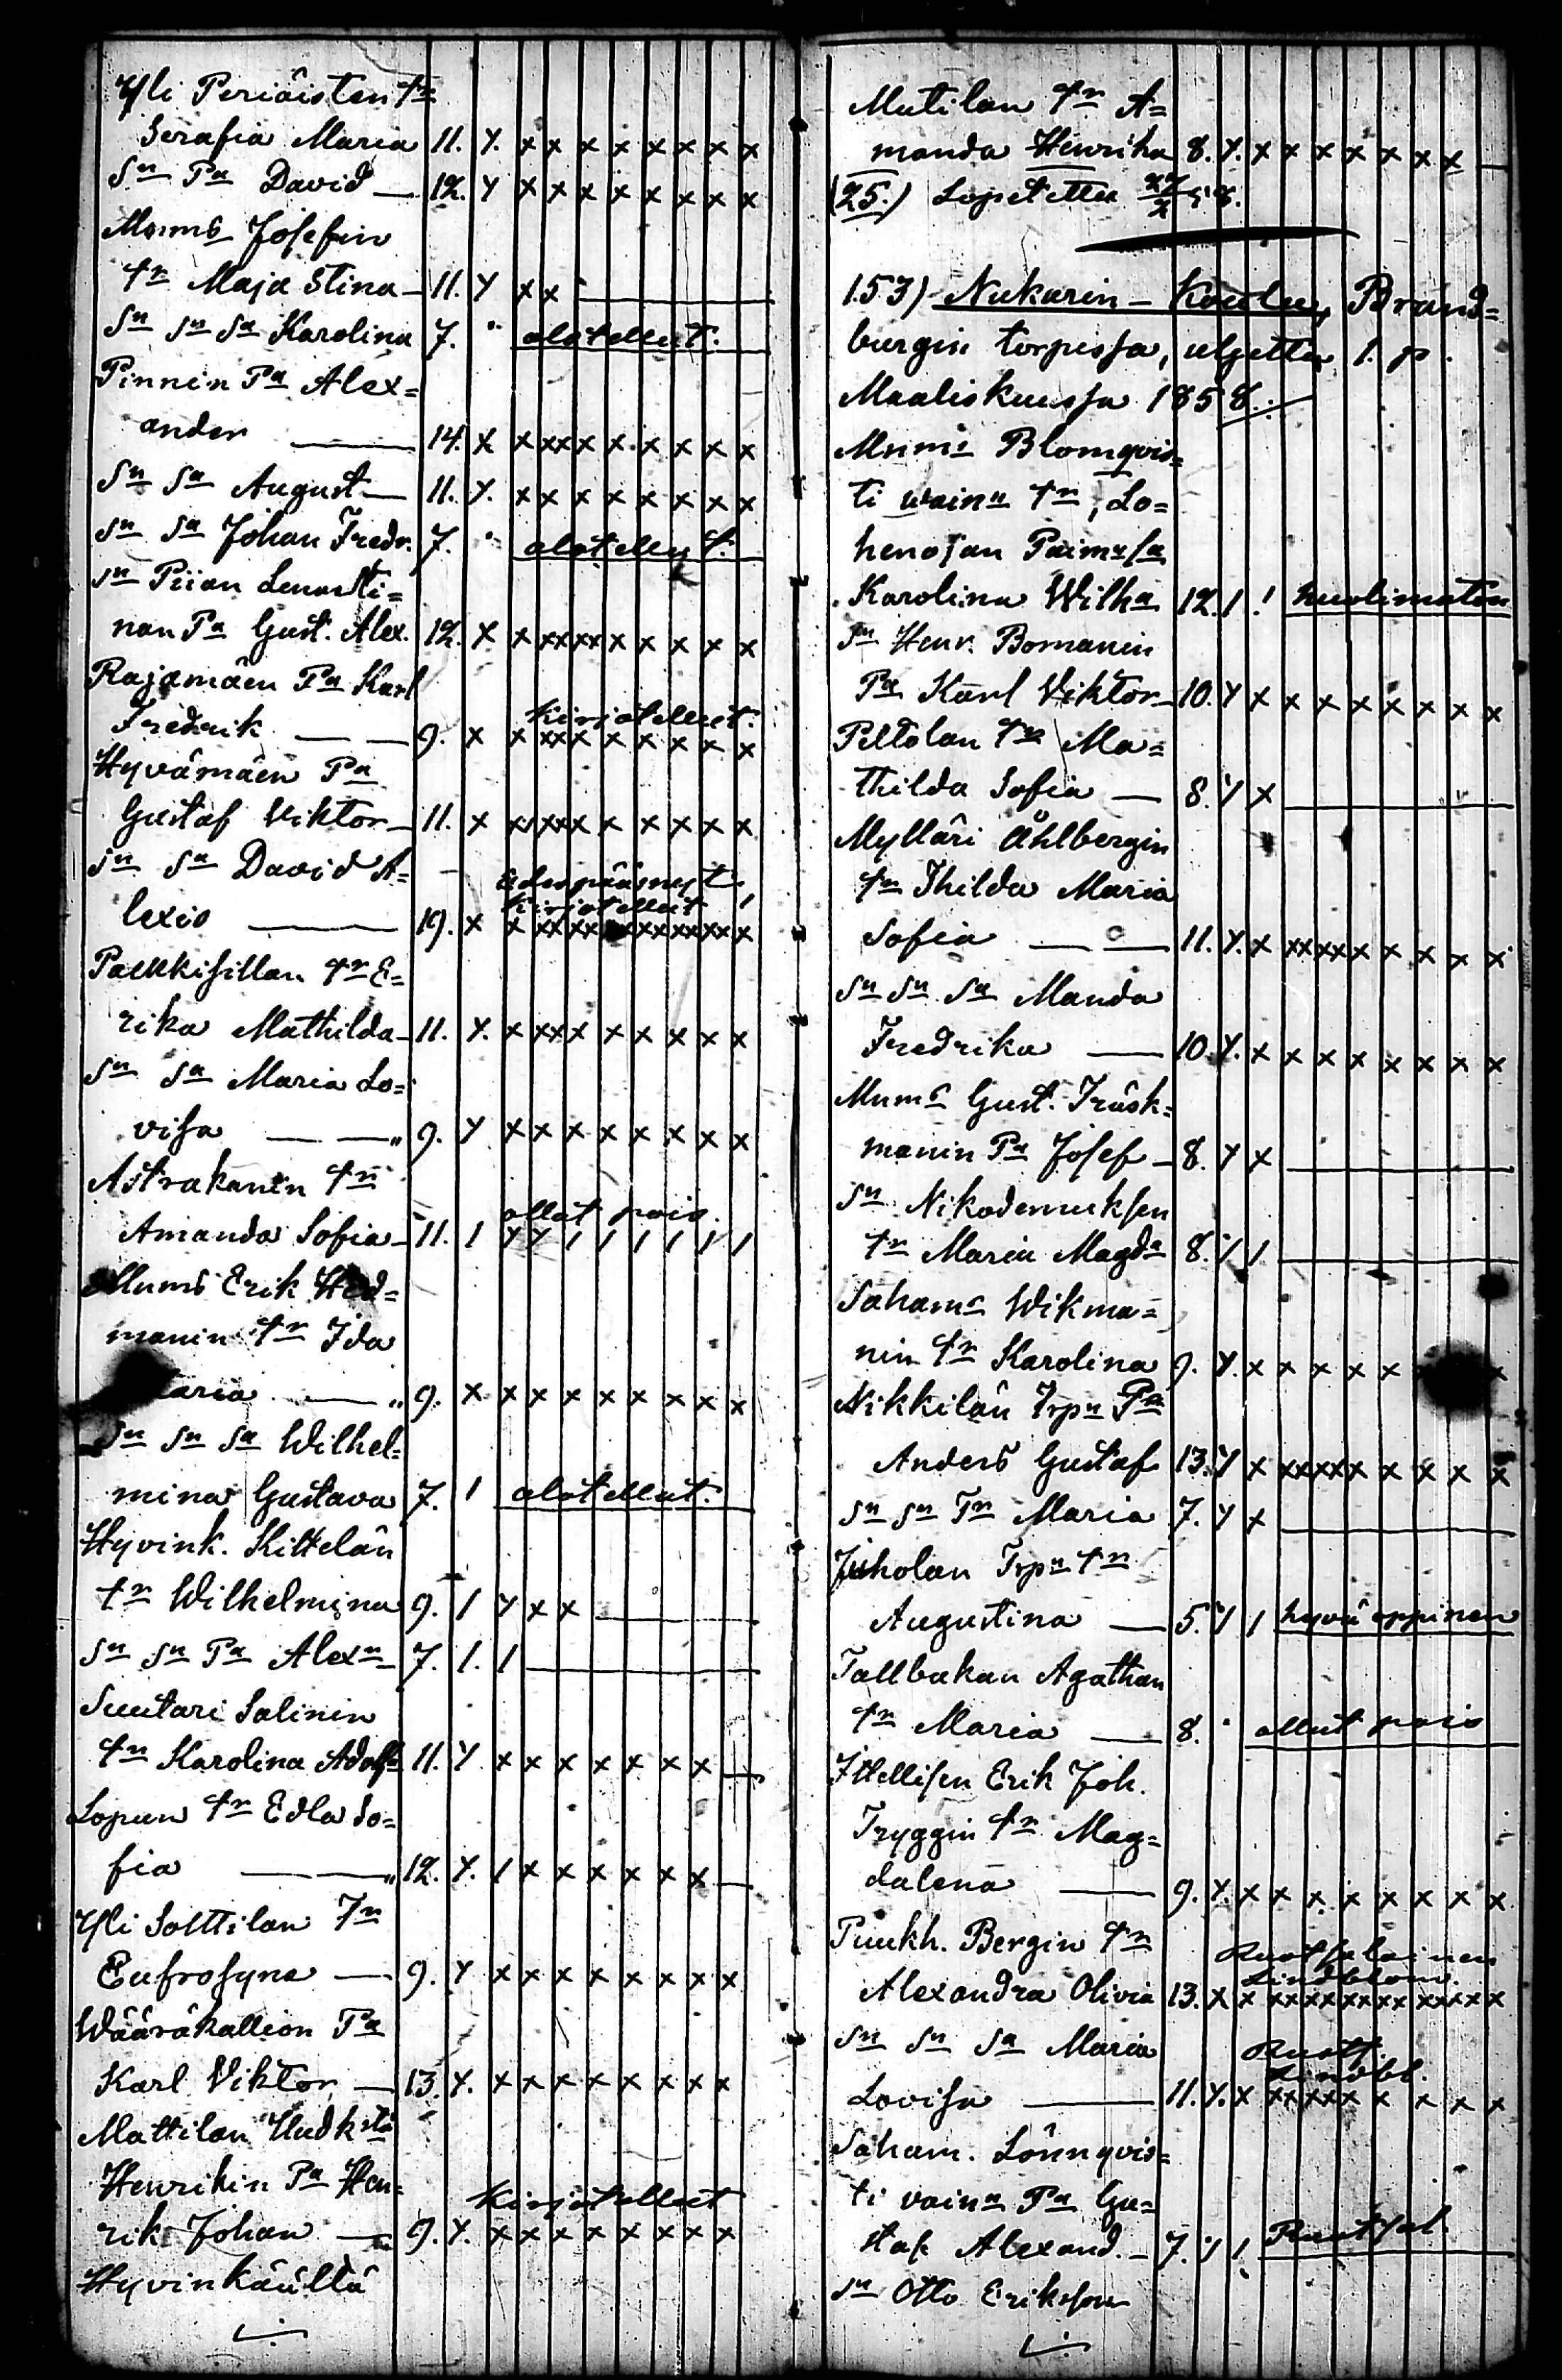 Yli Periäisten Tr
Serafia Maria 11. Y. x x x x x x x x
Sn Pa David — 12. Y x x x x x x x x
Mnms Josefin
Tr Maja Stina — 11. Y x x —
Sn Sn Sa Karolina 7. " alotellut.
Pinnin Pa Alex=
ander — 14. X x xx x x x x x x
Sn Sa August — 11. Y. x x x x x x x x
Sn Sa Johan Fredr. 7. " alotellut.
Sn Piian Lenasti=
nan Pa Gust. Alex. 12. X x xx xx x x x x x
Rajamäen Pa Karl
kirjotellut.
Fredrik — — 9. x x xx x x x x x x
Hyvämäen Pa
Gustaf Viktor — 11. x x xx x x x x x x
Sn Sa David A=
kirjotellut
lexis — 19. x x xx xx xx xx xx xx x
Palkkisillan Tr E=
rika Mathilda — 11. Y. x xx x x x x x x
Sn Sa Maria Lo=
visa — — " 9. Y x x x x x x x x
Astrakanin Tr
ollut pois.
Amanda Sofia — 11. / Y Y / / / / / /
Mnms Erik Hed=
manin Tr Ida
Maria — " 9. x x x x x x x x x
Sn Sn Sa Wilhel=
mina Gustava 7. / alotellut.
Hyvink. Kittelän
Tr Wilhelmina 9. / Y x x —
Sn Sn Pa Alexn 7. /. / —
Suutari Salinin
Tr Karolina Adolfa 11. Y x x x x x x x —
Lopun Tr Edla So=
fia — — " 12. Y. / x x x x x x —
Yli Solttilan Tr
Eufrosyne — 9. Y x x x x x x x x
Wääräkallion Pa
Karl Viktor — 13. Y. x x x x x x x x
Mattilan
Henrikin Pa Hen=
kirjotellut
rik Johan — 9. Y. x x x x x x x x
Hyvinkäältä
./.
Mutilan Tr A=
manda Henrika 8. Y. x x x x x x x —
(25.) Lopetettu
153) Nukarin - Koulu, Brand=
burgin torpassa, aljettu 1. p.
Maaliskuussa 1858.:
Mnms Blomqvis=
ti waina Tr, Lo=
henojan Paimsa
Karolina Wilha 12. / ! huolimaton
Sn Henr. Bomanin
Pa Karl Viktor — 10. Y x x x x x x x x
Peltolan Tr Ma=
thilda Sofia — 8. Y x —
Mylläri Åhlbergin
Tr Thilda Maria
Sofia — — 11. Y. x xx xx x x x x x
Sn Sn Sa Manda
Fredrika — 10. Y. x x x x x x x x
Mnms Gust. Träsk=
manin Pa Josef — 8. Y x —
Sn Nikodemuksen
Tr Maria Magda 8. Y / —
Sahams Wikma=
nin Tr Karolina 9. Y. x x x x x x
Nikkilän Trpn Pa
Anders Gustaf 13. Y x xx xx x x x x x
Sn Sn Tr Maria 7. Y x —
Juholan Trpn Tr
Augustina — 5. Y / hyvä oppinen
Tallbakan Agathan
Tr Maria — 8. " ollut pois
Itellisen Erik Joh.
Tryggin Tr Mag=
dalena — 9. Y. x x x x x x x x
Puukh. Bergin Tr
Ruotsalainen
Lindblom.
Alexandra Olivia 13. X x xx xx xx xx xx xx x
Sn Sn Sa Maria
Ruots.
Lindbl.
Lovisa — 11. Y. x xx xx x x x x x
Saham. Lönnqvis=
ti vaina Pa Gu=
staf Alexand. — 7. Y /. Ruotsal.
Sn Otto Eriksson
./.